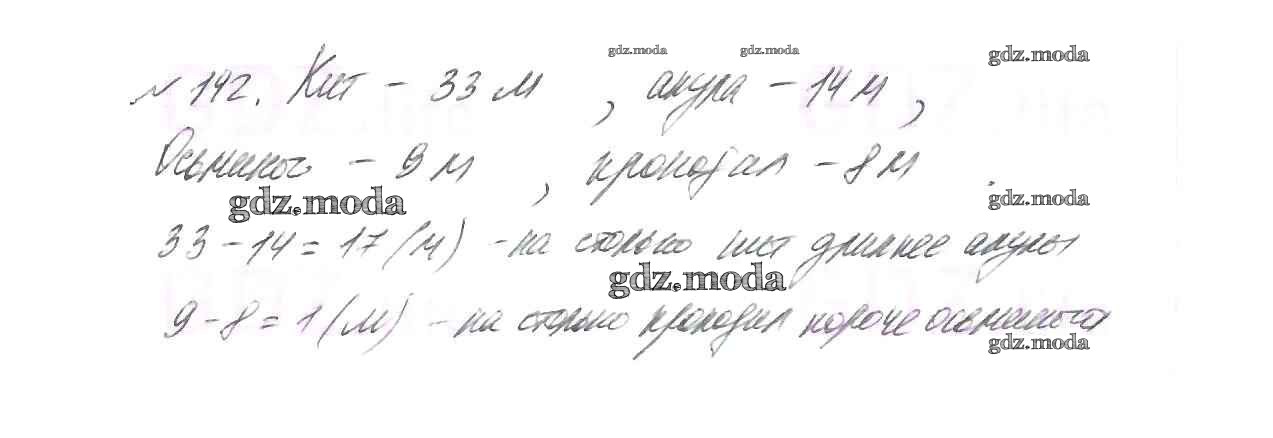 gdz.moda gdz.moda gdz.moda
№ 192. Кит – 33 м, акула – 14 м,
Осьминог – 9 м, крокодил – 8 м.
gdz.moda gdz.moda
33 – 14 = 17 (м) – на столько кит длиннее акулы
gdz.moda
9 – 8 = 1 (м) – на столько крокодил короче осьминога
gdz.moda